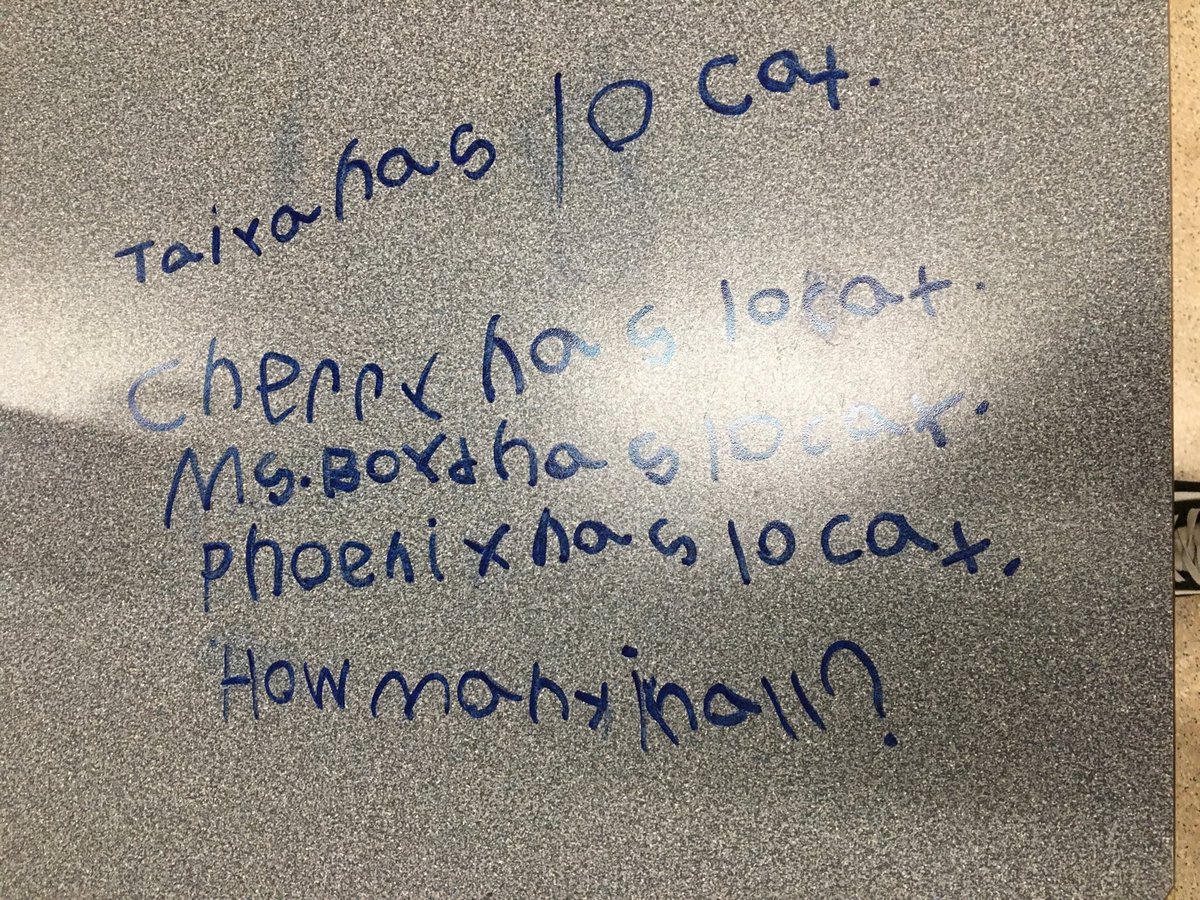 Taira has 10 cat.
Cherry has 10 cat.
Ms. Boyd has 10 cat.
Phoenix has 10 cat.
How many in all?